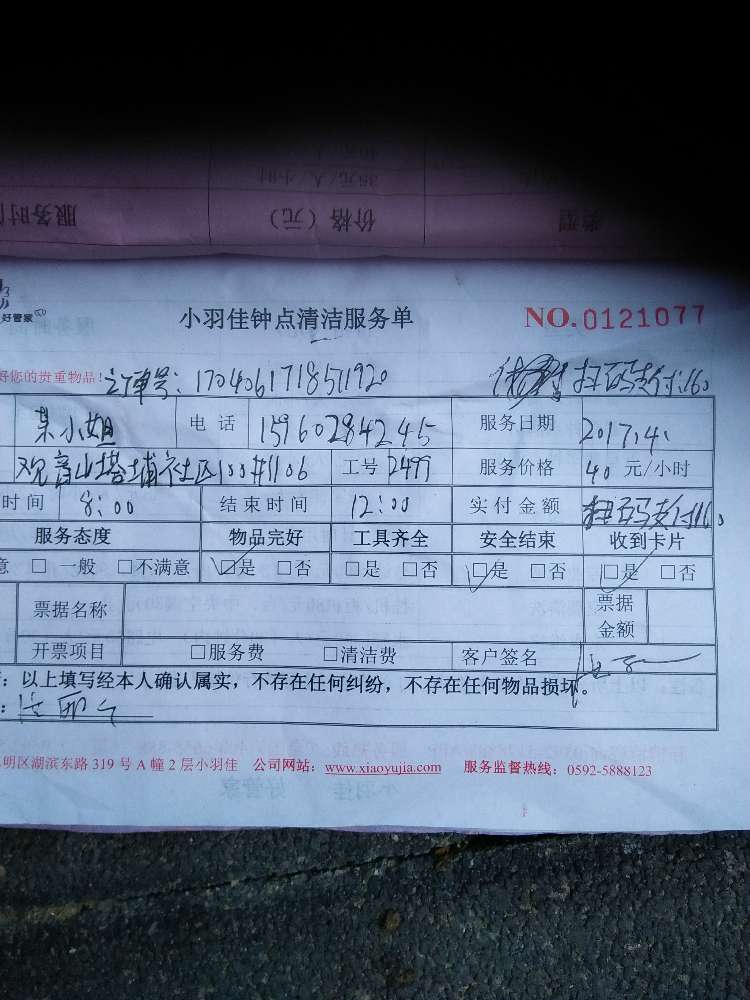 40元
类型
35元/人/小时
价格（元）
服务时
好管家
小羽佳钟点清洁服务单
NO.0121077
好您的贵重物品！订单号：17040617185711920
扫码支付：160
小姐 电话 15960284245 服务日期 2017.4.
观音山塔埔社区100#1106 工号 2499 服务价格 40 元/小时
时间 8:00 结束时间 12:00 实付金额 扫码支付160
服务态度 物品完好 工具齐全 安全结束 收到卡片
意 □ 一般 □不满意 □是 □否 □是 □否 □是 □否 □是 □否
票据名称 票据金额
开票项目 □服务费 □清洁费 客户签名
：以上填写经本人确认属实，不存在任何纠纷，不存在任何物品损坏。
明区湖滨东路 319 号 A 幢 2 层小羽佳 公司网站：www.xiaoyujia.com 服务监督热线：0592-5888123